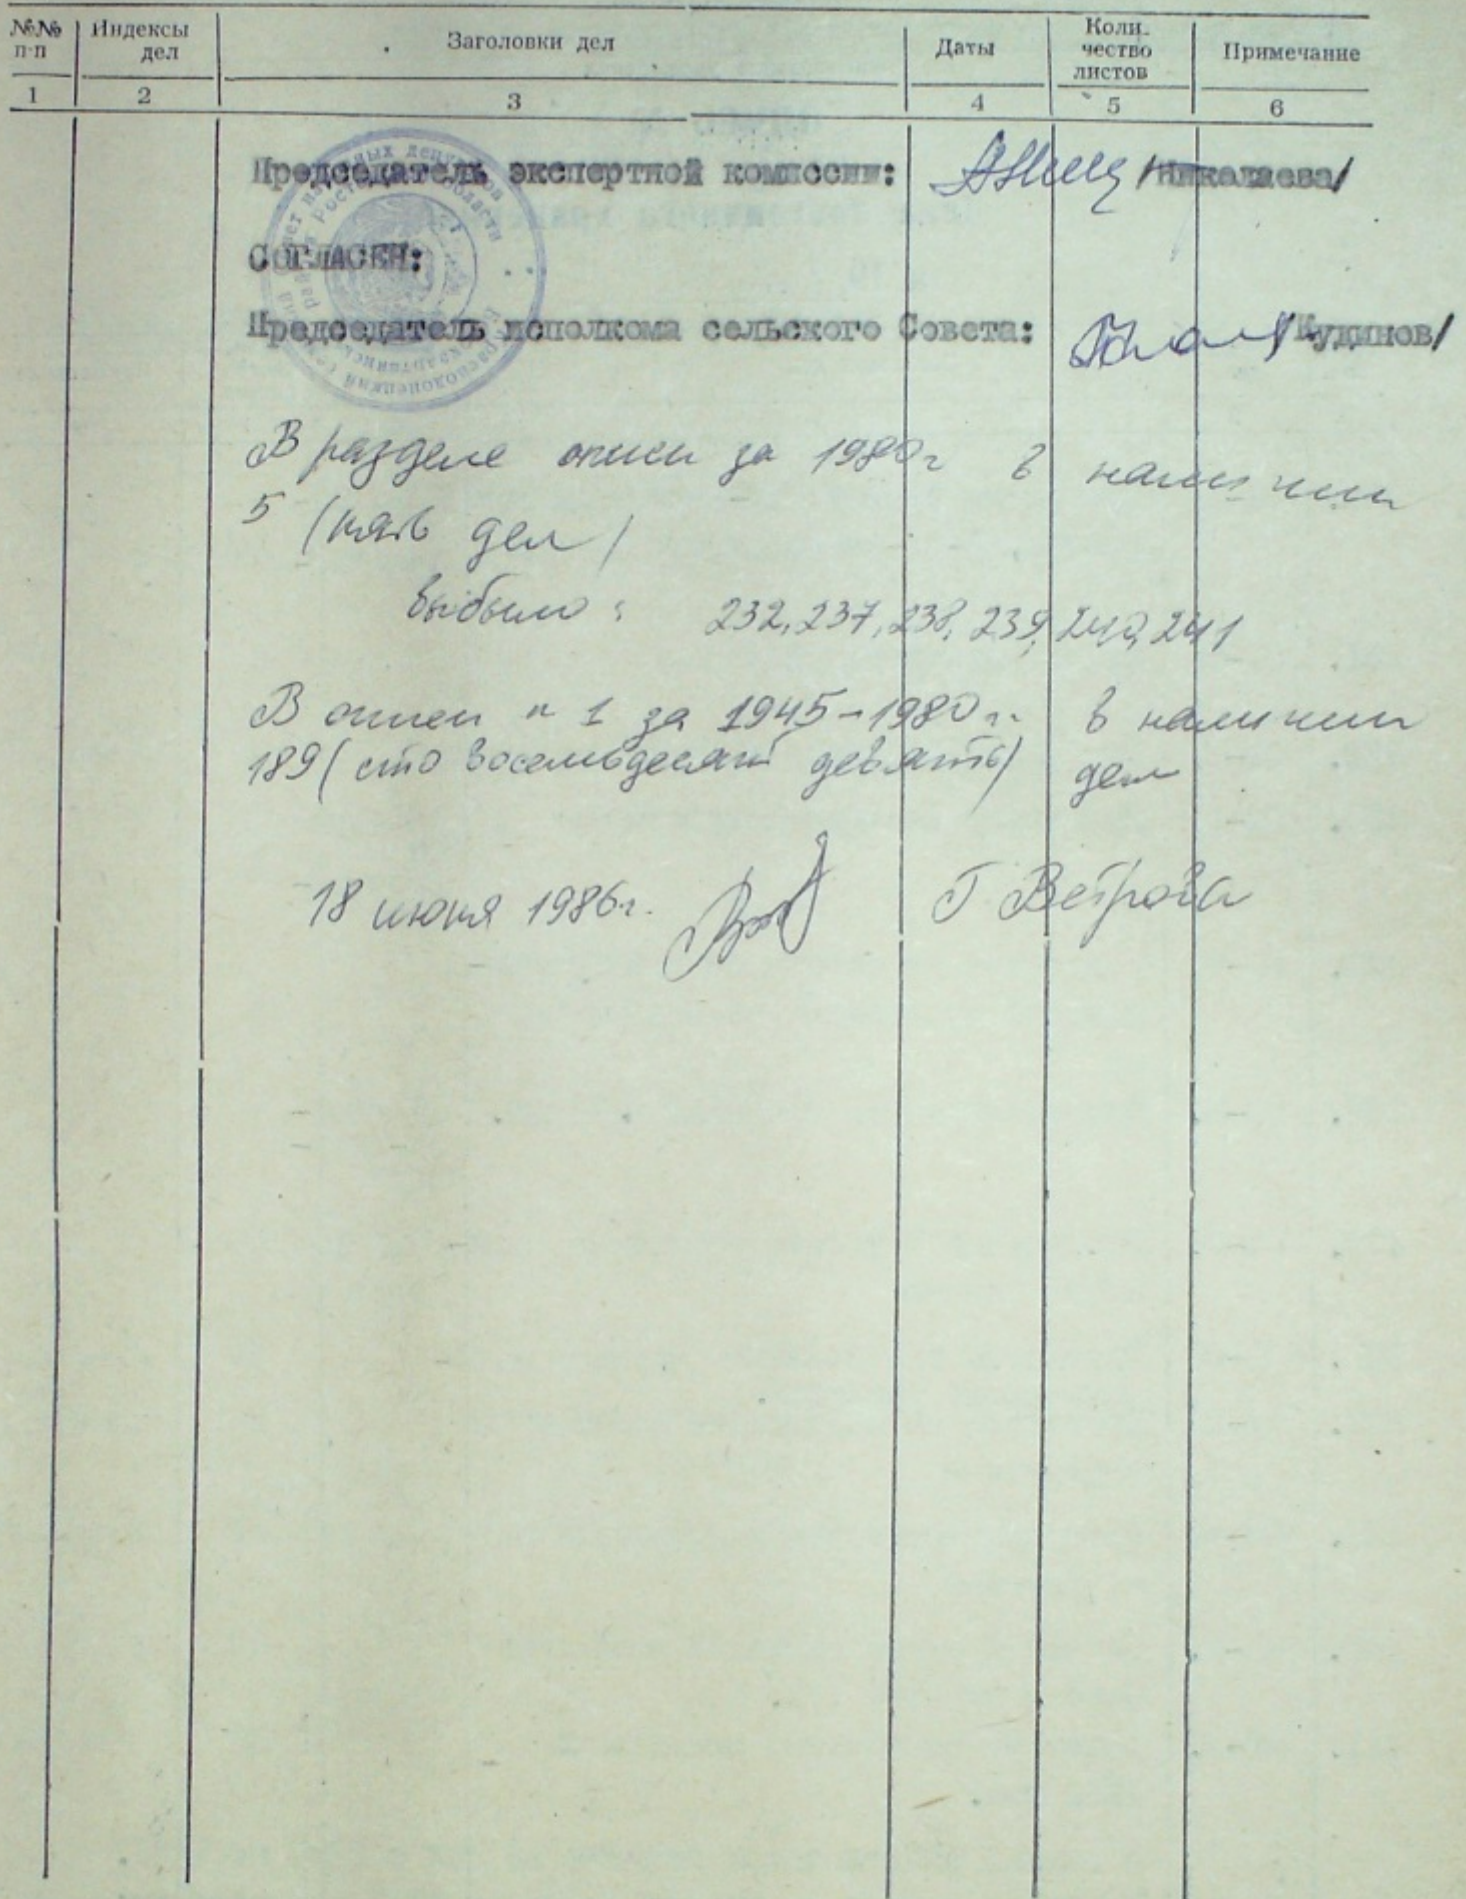 №№ п-п | Индексы дел | Заголовки дел | Даты | Коли- чество листов | Примечание
1 | 2 | 3 | 4 | 5 | 6
Председатель экспертной комиссии: /Николаева/
СОГЛАСЕН:
Председатель исполкома сельского Совета: /Кудинов/
В разделе описи за 1980г в наличии
5 (пять дел)
выбыло: 232, 237, 238, 239, 240, 241
В описи № 1 за 1945-1980 г. в наличии
189 (сто восемьдесят девять) дел
18 июня 1986г. Г Ветрова